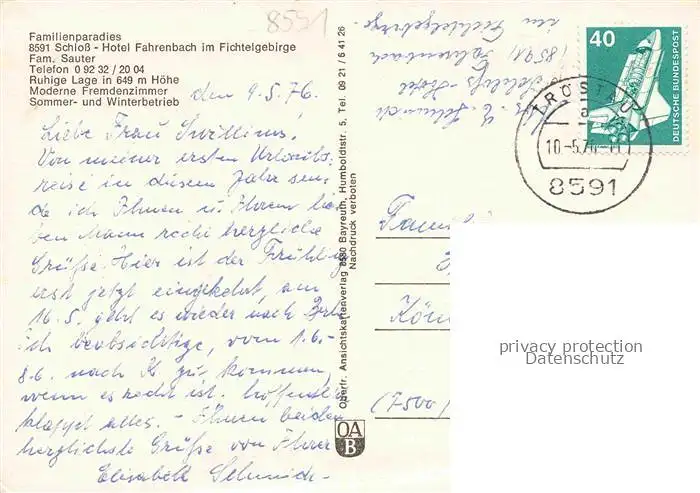 8591
Familienparadies
8591 Schloß - Hotel Fahrenbach im Fichtelgebirge
Fam. Sauter
Telefon 0 92 32 / 20 04
Ruhige Lage in 649 m Höhe
Moderne Fremdenzimmer
Sommer- und Winterbetrieb
den 9.5.76.
Liebe Frau
Von meiner ersten Urlaubs-
reise in diesem Jahr sen-
de ich Ihnen u. Ihrem lie-
ben Mann recht herzliche
Grüße. Hier ist der Frühling
erst jetzt eingekehrt, am
16.5. geht es wieder nach Berlin
ich beabsichtige, vom 1.6.-
8.6. nach K. zu kommen,
wenn es recht ist. hoffentlich
klappt alles. - Ihnen beiden
herzlichste Grüße von Ihrer
Elisabeth Schmidt-
Schmidt
Schloß-Hotel
(8591) Fahrenbach
im Fichtelgebirge
Oberfr. Ansichtskartenverlag 8580 Bayreuth, Humboldtstr. 5, Tel. 09 21 / 6 41 26
Nachdruck verboten
OA
B
40
DEUTSCHE BUNDESPOST
TRÖSTAU
a
10.-5.76.-11
8591
(7500)
privacy protection
Datenschutz